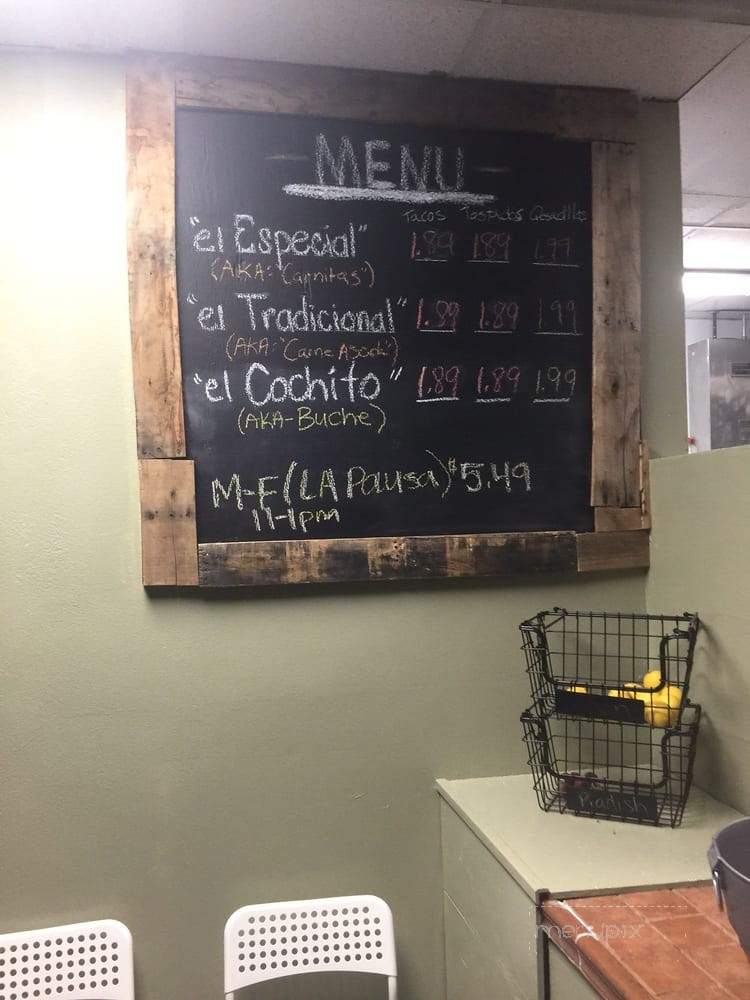 MENU
Tacos Tospudos Qesadillas
"el Especial" 1.89 1.89 1.99
(AKA-"Carnitas")
"el Tradicional" 1.89 1.89 1.99
(AKA-"Carne Asada")
"el Cochito" 1.89 1.89 1.99
(AKA-Buche)
M-F (LA Pausa) $5.49
11-1pm
Radish
menupix